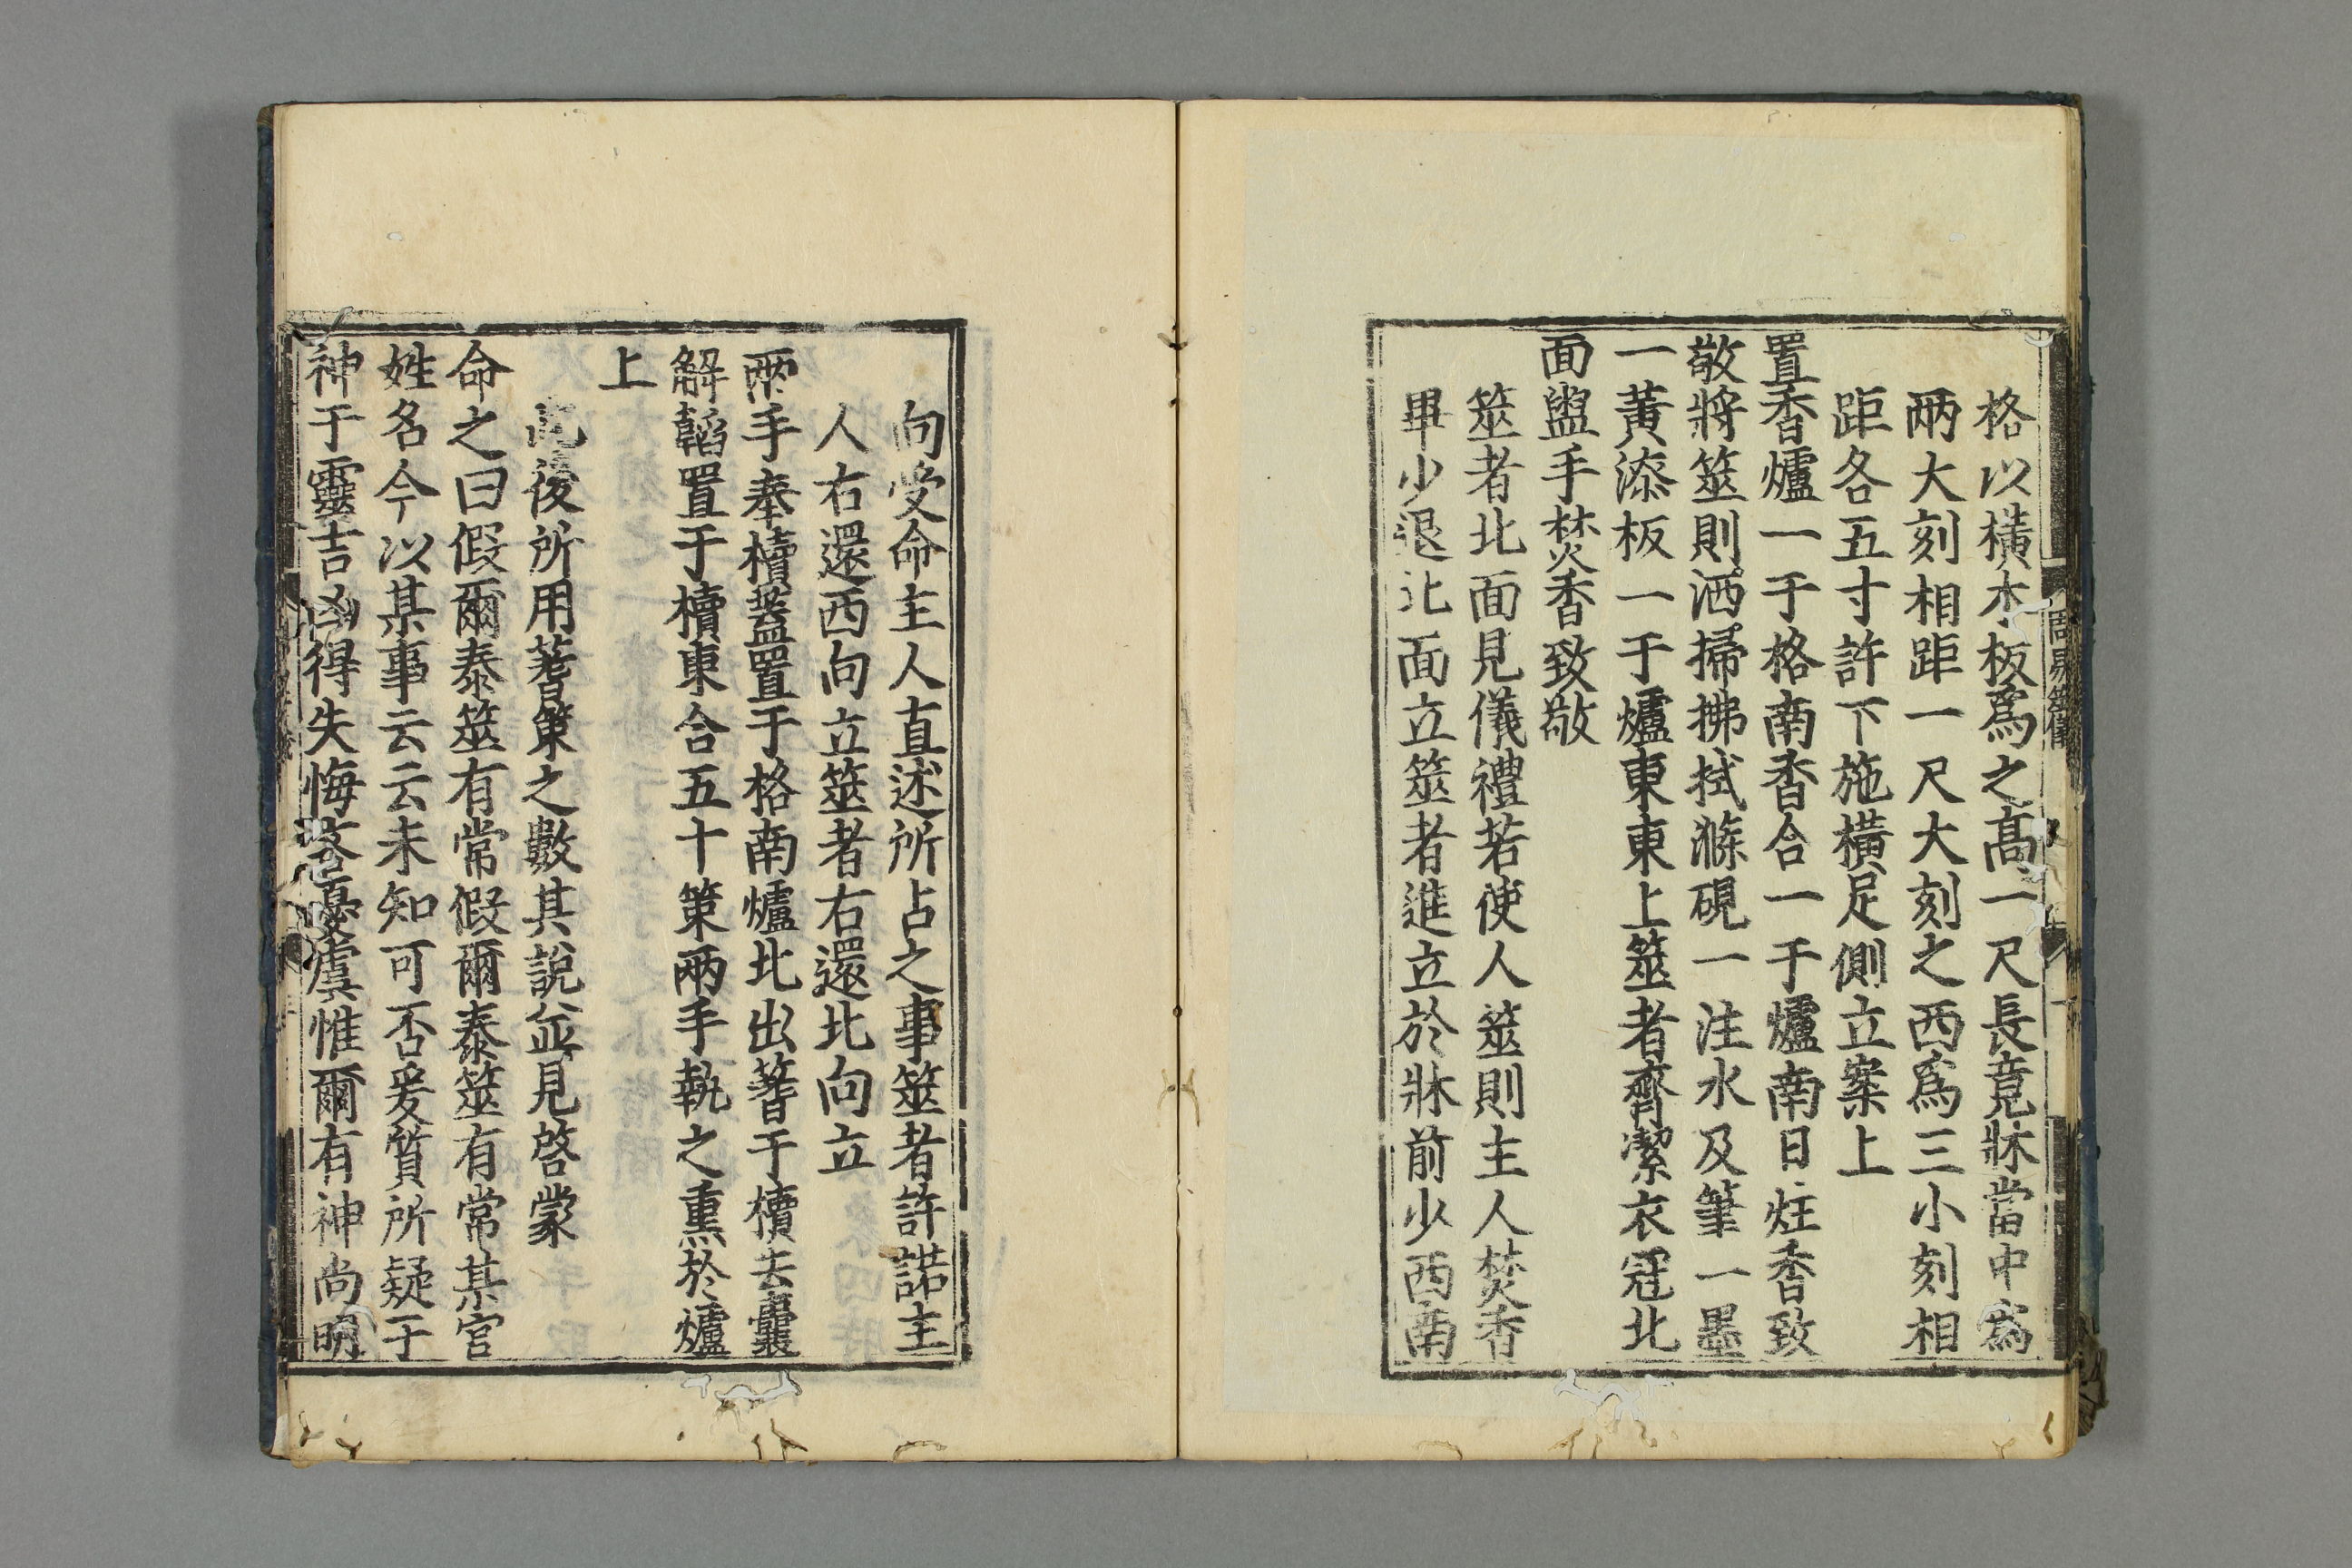 格以橫木板爲之高一尺長竟牀當中爲
兩大刻相距一尺大刻之西爲三小刻相
距各五寸許下施橫足側立案上
置香爐一于格南香合一于爐南日炷香致
敬將筮則洒掃拂拭滌硯一注水及筆一墨
一黃漆板一于爐東東上筮者齊潔衣冠北
面盥手焚香致敬
筮者北面見儀禮若使人筮則主人焚香
畢少退北面立筮者進立於牀前少西南
周易筮儀
向受命主人直述所占之事筮者許諾主
人右還西向立筮者右還北向立
兩手奉櫝蓋置于格南爐北出蓍于櫝去囊
解韜置于櫝東合五十策兩手執之熏於爐
上
此後所用蓍策之數其說並見啓蒙
命之曰假爾泰筮有常假爾泰筮有常某官
姓名今以某事云云未知可否爰質所疑于
神于靈吉凶得失悔吝憂虞惟爾有神尚明